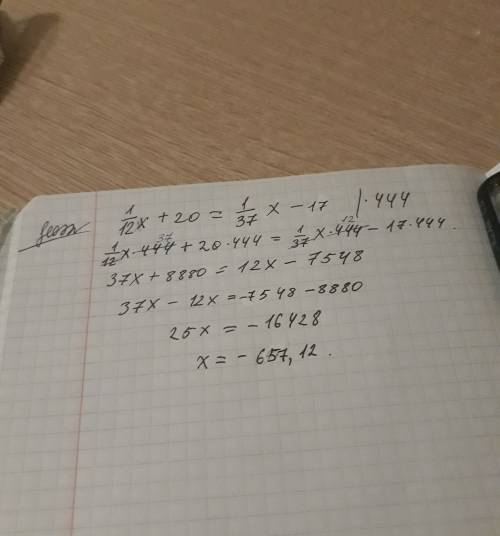 1/12 x + 20 = 1/37 x - 17 | · 444
1/12 x · 444 37 + 20 · 444 = 1/37 x · 444 12 - 17 · 444.
37x + 8880 = 12x - 7548
37x - 12x = -7548 - 8880
25x = -16428
x = - 657,12.